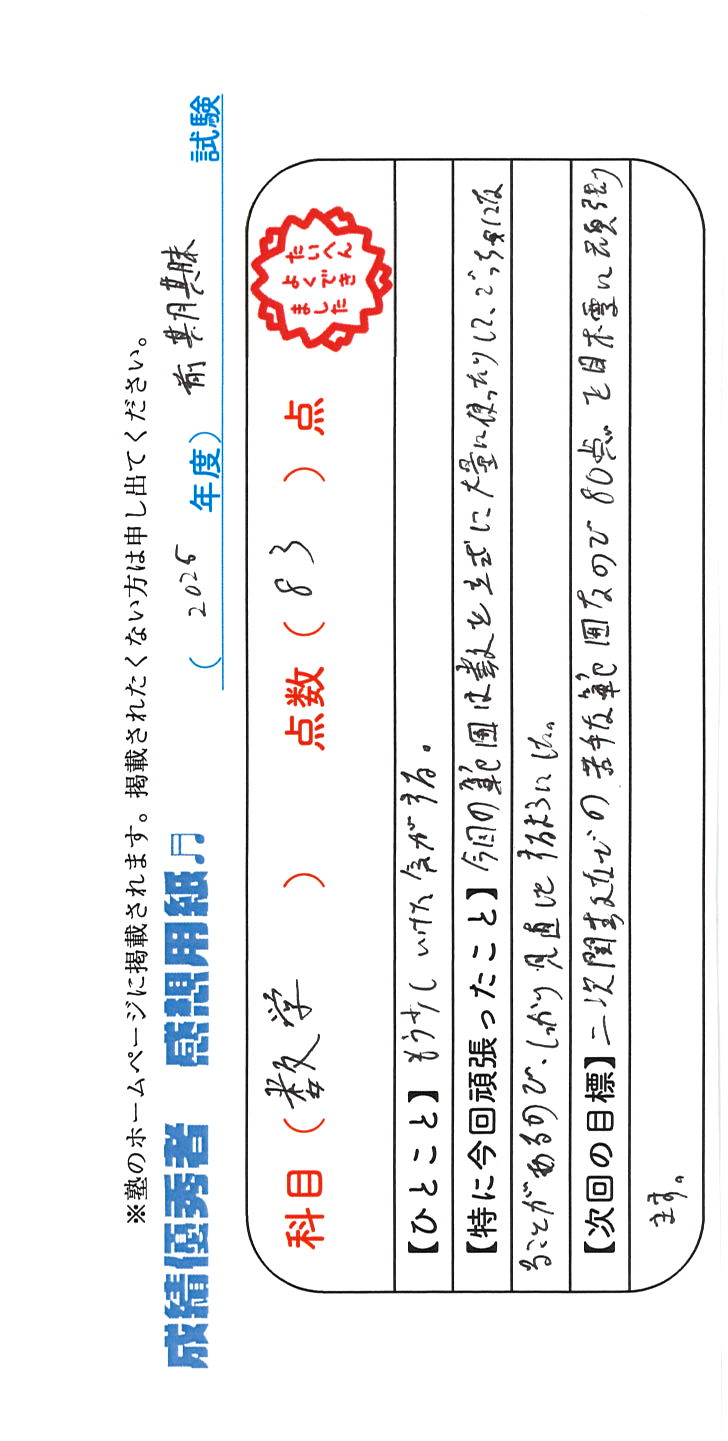 ※塾のホームページに掲載されます。掲載されたくない方は申し出てください。
成績優秀者 感想用紙♫
( 2025 年度) 前期期末 試験
科目 ( 数学 ) 点数 ( 83 ) 点
たいへん
よくでき
ました
【ひとこと】もう少しいけた気がする。
【特に今回頑張ったこと】今回の範囲は数を立式に大量に使ったりして、ごっちゃにな
ることがあるので、しっかり見直しをするようにした。
【次回の目標】二次関数などの苦手な範囲なので80点を目標に頑張り
ます。